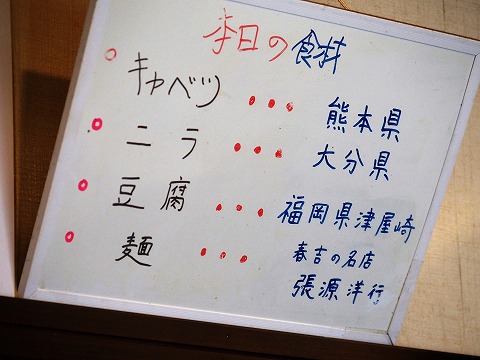 本日の食材
○ キャベツ ... 熊本県
○ ニラ ... 大分県
○ 豆腐 ... 福岡県津屋崎
○ 麺 ... 春吉の名店
張源洋行